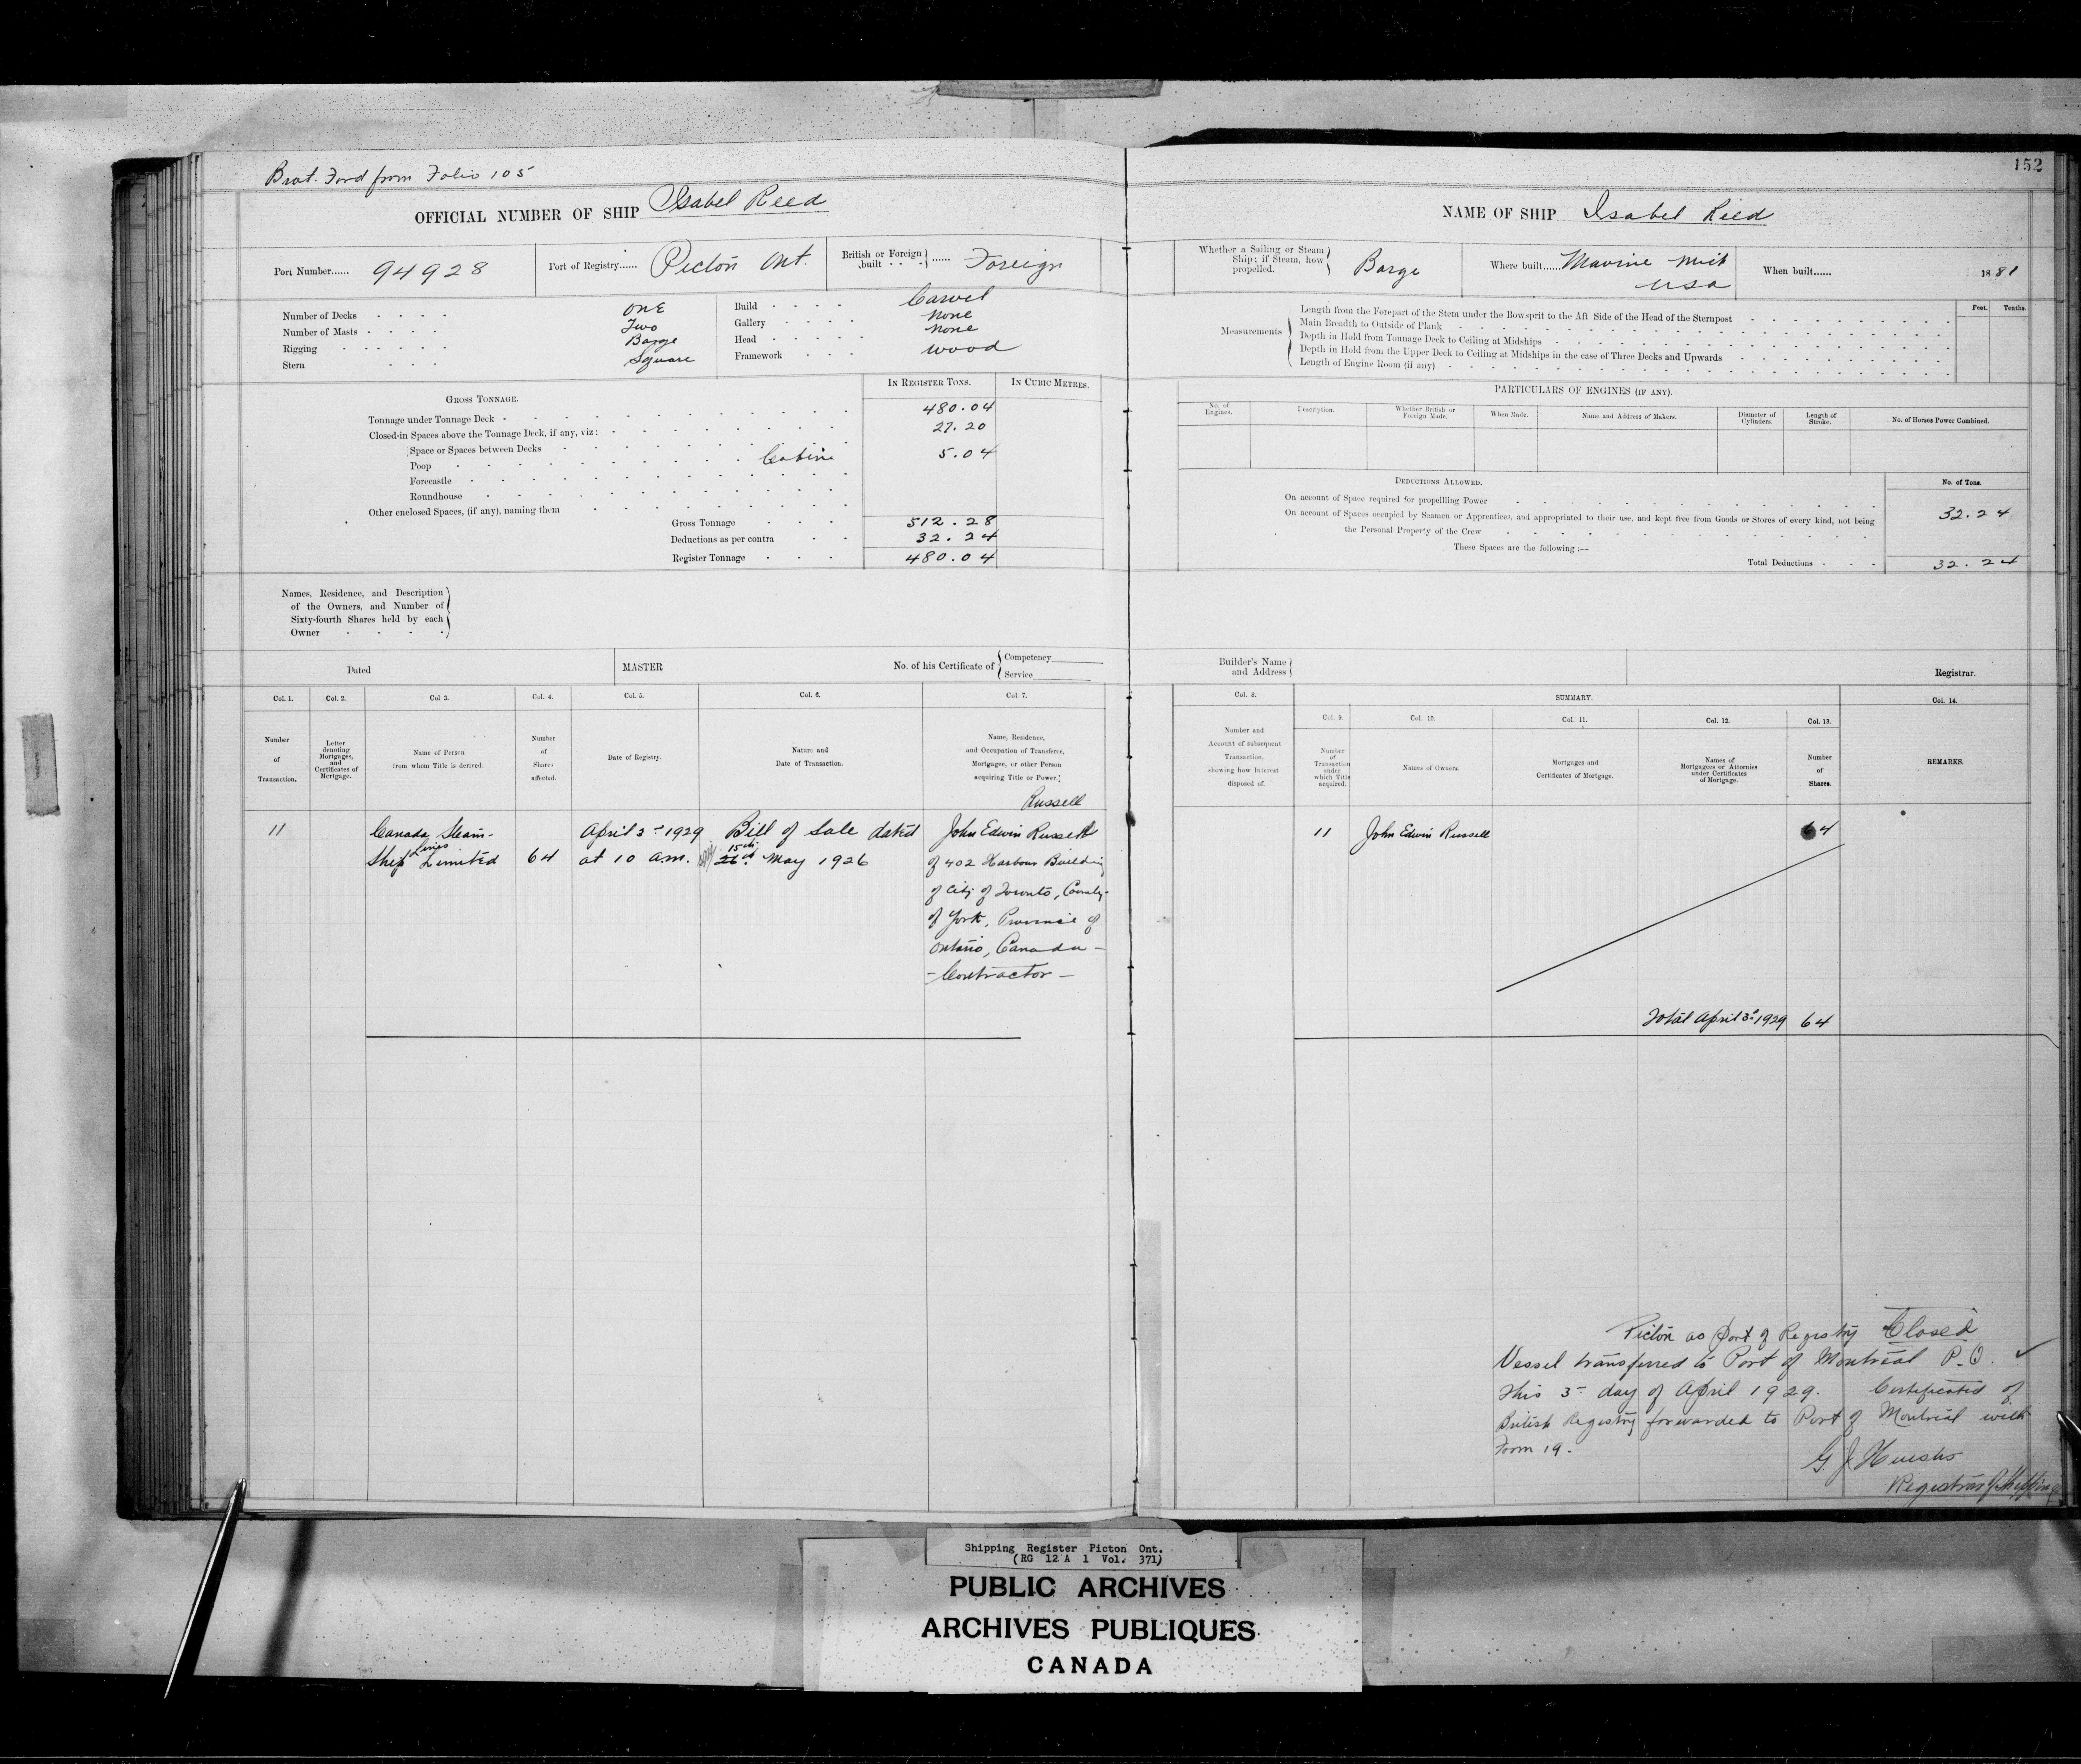 Brot. Ford from Folio 105
OFFICIAL NUMBER OF SHIP Isabel Reed
Port Number...... 94928
Port of Registry...... Picton Ont.
British or Foreign built ...... Foreign
Number of Decks ONE
Number of Masts Two
Rigging Barge
Stern Square
Build Carvel
Gallery None
Head None
Framework Wood
GROSS TONNAGE.
IN REGISTER TONS. IN CUBIC METRES.
Tonnage under Tonnage Deck 480.04
Closed-in Spaces above the Tonnage Deck, if any, viz: 27.20
Space or Spaces between Decks
Poop Cabin 5.04
Forecastle
Roundhouse
Other enclosed Spaces, (if any), naming them
Gross Tonnage 512.28
Deductions as per contra 32.24
Register Tonnage 480.04
Names, Residence, and Description
of the Owners, and Number of
Sixty-fourth Shares held by each
Owner
Dated
MASTER
No. of his Certificate of Competency
Service
Col. 1. Col. 2. Col 3. Col. 4. Col. 5. Col. 6. Col 7.
Number of Transaction.
Letter denoting Mortgages, and Certificates of Mortgage.
Name of Person from whom Title is derived.
Number of Shares affected.
Date of Registry.
Nature and Date of Transaction.
Name, Residence, and Occupation of Transferee, Mortgagee, or other Person acquiring Title or Power.
Russell
11 Canada Steam- April 3rd 1929 Bill of Sale dated John Edwin Russell
Lines 15th
Ship Limited 64 at 10 a.m. 26th May 1926 of 402 Harbour Building
of City of Toronto, County
of York, Province of
Ontario, Canada -
- Contractor -
152
NAME OF SHIP Isabel Reed
Whether a Sailing or Steam Ship; if Steam, how propelled. Barge
Where built...... Marine Mich
USA
When built...... 1881
Measurements
Feet. Tenths.
Length from the Forepart of the Stem under the Bowsprit to the Aft Side of the Head of the Sternpost
Main Breadth to Outside of Plank
Depth in Hold from Tonnage Deck to Ceiling at Midships
Depth in Hold from the Upper Deck to Ceiling at Midships in the case of Three Decks and Upwards
Length of Engine Room (if any)
PARTICULARS OF ENGINES (IF ANY).
No. of Engines.
Description.
Whether British or Foreign Made.
When Made.
Name and Address of Makers.
Diameter of Cylinders.
Length of Stroke.
No. of Horses Power Combined.
DEDUCTIONS ALLOWED.
No. of Tons.
On account of Space required for propellling Power
On account of Spaces occupied by Seamen or Apprentices, and appropriated to their use, and kept free from Goods or Stores of every kind, not being 32.24
the Personal Property of the Crew
These Spaces are the following :--
Total Deductions 32.24
Builder's Name and Address
Registrar.
Col. 8. SUMMARY. Col. 14.
Col. 9. Col. 10. Col. 11. Col. 12. Col. 13.
Number and Account of subsequent Transaction, showing how Interest disposed of.
Number of Transaction under which Title acquired.
Names of Owners.
Mortgages and Certificates of Mortgage.
Names of Mortgagees or Attornies under Certificates of Mortgage.
Number of Shares.
REMARKS.
11 John Edwin Russell 64
Total April 3rd 1929 64
Picton as Port of Registry Closed
Vessel transferred to Port of Montreal P.Q.
this 3rd day of April 1929. Certificated of
British Registry forwarded to Port of Montreal with
Form 19.
Registrar of Shipping
Shipping Register Picton Ont.
(RG 12 A 1 Vol. 371)
PUBLIC ARCHIVES
ARCHIVES PUBLIQUES
CANADA